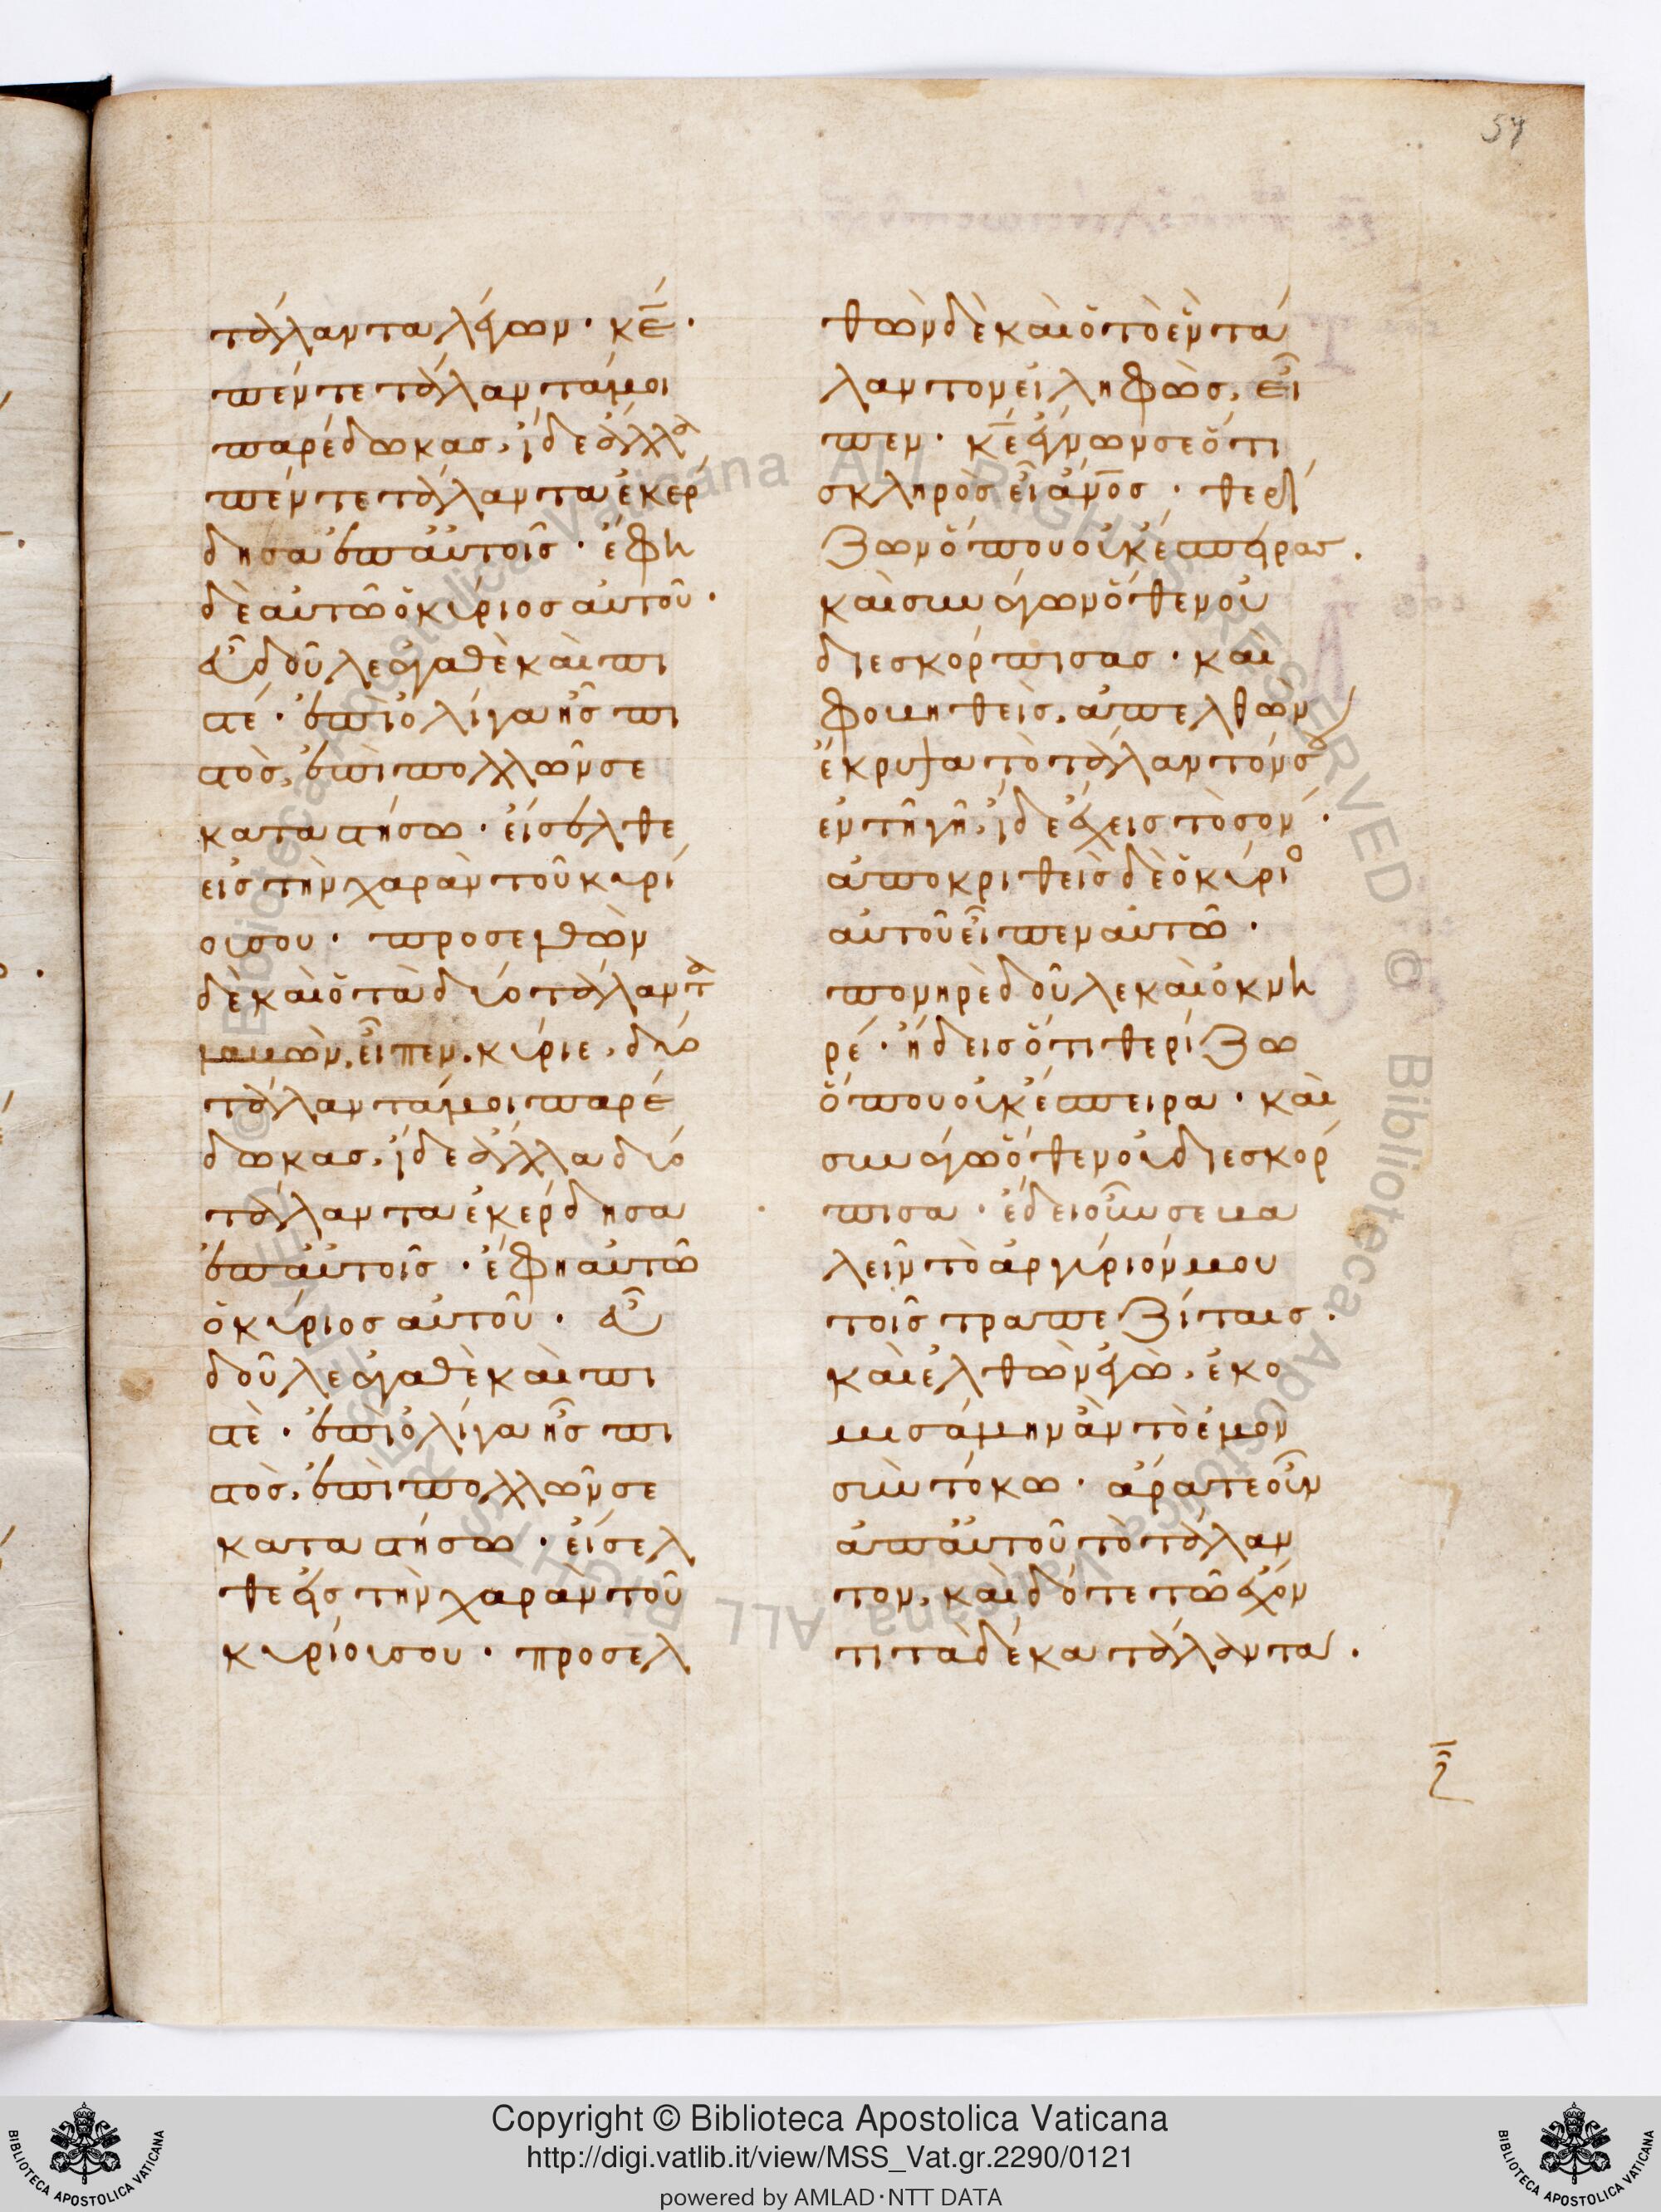 57
τάλαντα λέγων· κ̅ε̅·
πέντε τάλαντά μοι
παρέδωκας, ἴδε ἄλλα
πέντε τάλαντα ἐκέρ
δησα ἐπ' αὐτοῖς· ἔφη
δὲ αὐτῶ ὁ κύριος αὐτοῦ·
εὖ δοῦλε ἀγαθὲ καὶ πι
στέ· ἐπὶ ὀλίγα ἦς πι
στὸς, ἐπὶ πολλῶν σε
καταστήσω· εἴσελθε
εἰς τὴν χαρὰν τοῦ κυρί
ου σου· προσελθὼν
δὲ καὶ ὁ τὰ δύο τάλαντα
λαβὼν, εἶπεν. κύριε, δύο
τάλαντά μοι παρέ
δωκας, ἴδε ἄλλα δύο
τάλαντα ἐκέρδησα
ἐπ' αὐτοῖς· ἔφη αὐτῶ
ὁ κύριος αὐτοῦ· εὖ
δοῦλε ἀγαθὲ καὶ πι
στὲ· ἐπὶ ὀλίγα ἦς πι
στὸς, ἐπὶ πολλῶν σε
καταστήσω· εἴσελ
θε εἰς τὴν χαρὰν τοῦ
κυρίου σου· προσελ
θὼν δὲ καὶ ὁ τὸ ἓν τά
λαντον εἰληφὼς, εἶ
πεν· κ̅ε̅ ἔγνων σε ὅτι
σκληρὸς εἶ α̅ν̅ο̅ς̅· θερί
ζων ὅπου οὐκ ἔσπειρας.
καὶ συνάγων ὅθεν οὐ
διεσκόρπισας· καὶ
φοβηθεὶς, ἀπελθὼν
ἔκρυψα τὸ τάλαντόν σου
ἐν τῆ γῆ, ἴδε ἔχεις τὸ σόν·
ἀποκριθεὶς δὲ ὁ κύριος
αὐτοῦ εἶπεν αὐτῶ·
πονηρὲ δοῦλε καὶ ὀκνη
ρέ· ἤδεις ὅτι θερίζω
ὅπου οὐκ ἔσπειρα· καὶ
συνάγω ὅθεν οὐ διεσκόρ
πισα· ἔδει οὖν σε βα
λεῖν τὸ ἀργύριόν μου
τοῖς τραπεζίταις.
καὶ ἐλθὼν ἐγὼ, ἐκο
μισάμην ἂν τὸ ἐμὸν
σὺν τόκω· ἄρατε οὖν
ἀπ' αὐτοῦ τὸ τάλαν
τον, καὶ δότε τῶ ἔχον
τι τὰ δέκα τάλαντα.
Copyright © Biblioteca Apostolica Vaticana
http://digi.vatlib.it/view/MSS_Vat.gr.2290/0121
powered by AMLAD·NTT DATA
BIBLIOTECA APOSTOLICA VATICANA
BIBLIOTECA APOSTOLICA VATICANA